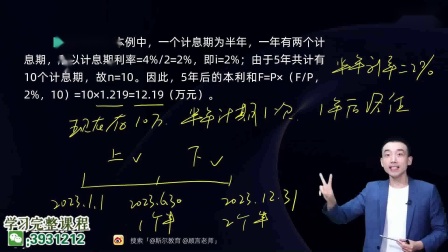 本例中，一个计息期为半年，一年有两个计
息期，所以计息期利率=4%/2=2%，即i=2%；由于5年共计有
10个计息期，故n=10。因此，5年后的本利和F=P×（F/P，
2%，10）=10×1.219=12.19（万元）。
半年利率=2%
现在存10万．半年计息1次．1年后終值
上✓ 下✓
2023.1.1 2023.6.30 2023.12.31
1个半 2个半
学习完整课程
3931212
搜索「@斯尔教育 @顾言老师」